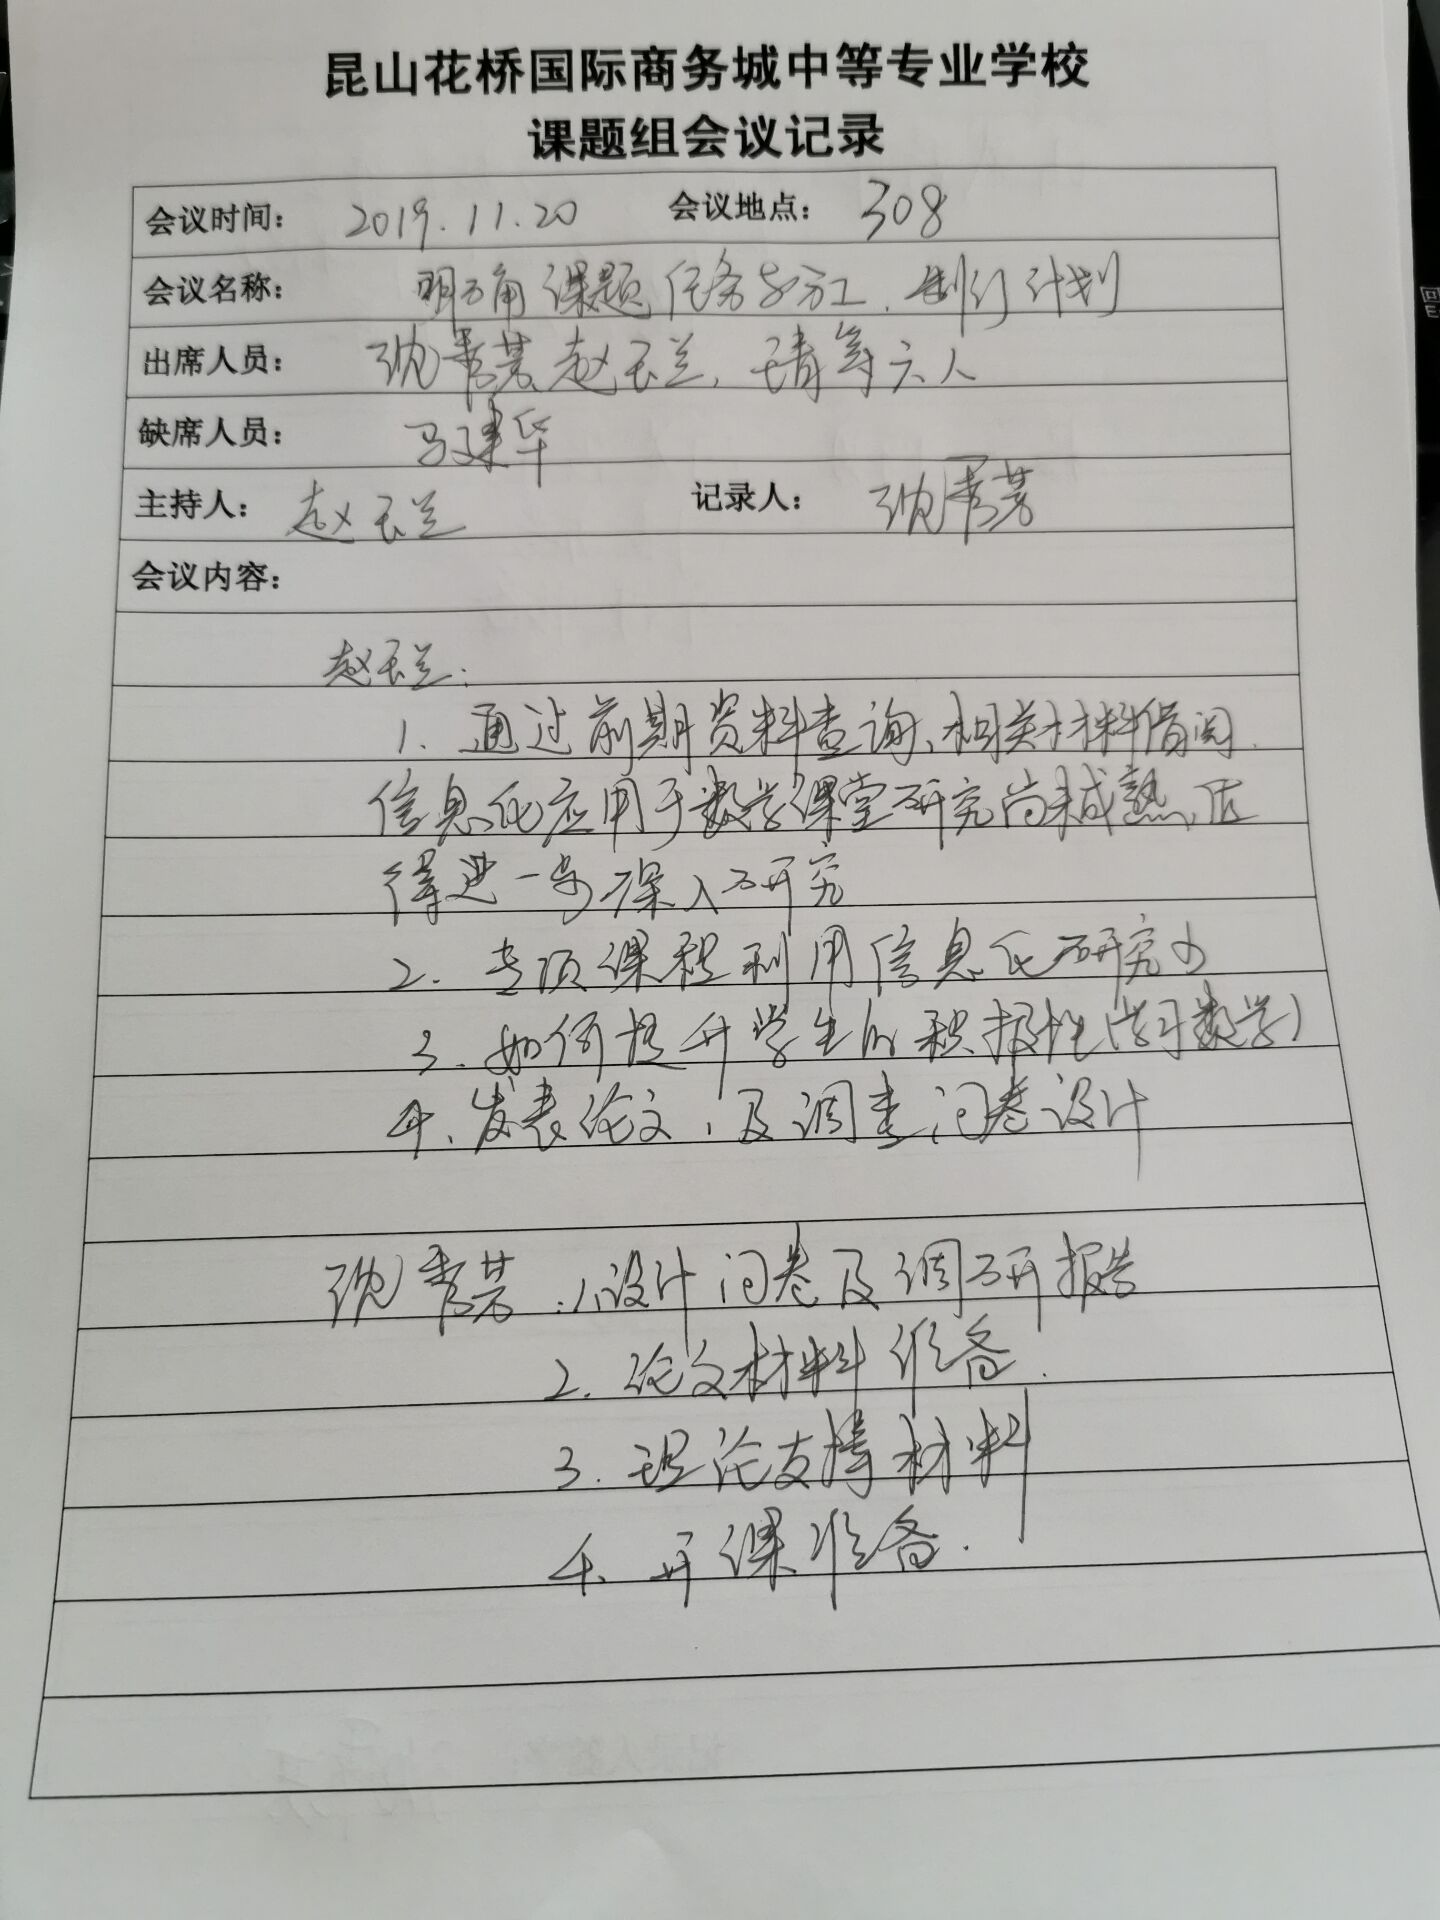 昆山花桥国际商务城中等专业学校
课题组会议记录
会议时间： 2019.11.20 会议地点： 308
会议名称： 明确课题任务与分工、制订计划
出席人员： 沈秀芳、赵玉兰、王青等六人
缺席人员： 马建华
主持人： 赵玉兰 记录人： 沈秀芳
会议内容：
赵玉兰：
1. 通过前期资料查询、相关材料借阅.
信息化应用于数学课堂研究尚未成熟、值
得进一步深入研究
2. 专项课程利用信息化研究少
3. 如何提升学生的积极性(学习数学)
4、发表论文，及调查问卷设计
沈秀芳：1、设计问卷及调研报告
2. 论文材料准备.
3. 理论支撑材料
4、开课准备.